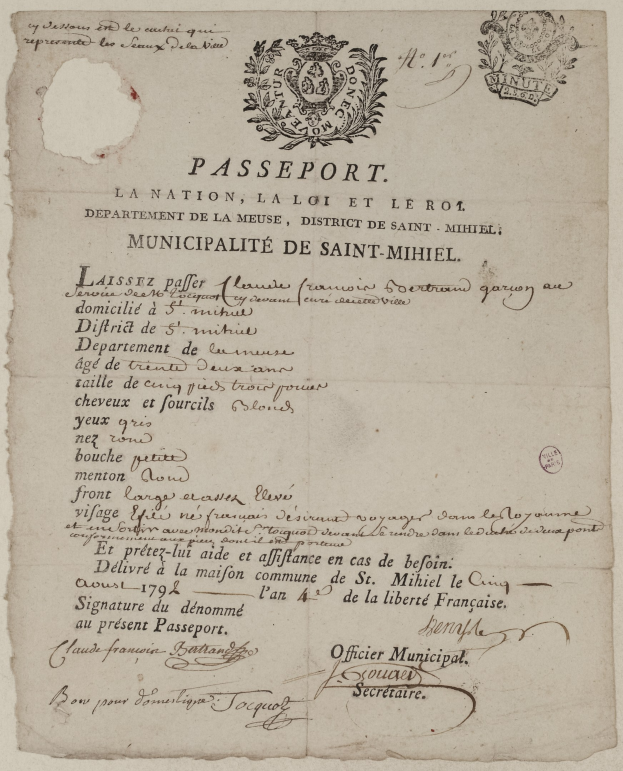 cy dessous est le cachet qui
représente les Seaux de la Ville
DONEC MOVEANTUR
N.º 1er
MINUTE
PASSEPORT.
LA NATION, LA LOI ET LE ROI.
DEPARTEMENT DE LA MEUSE, DISTRICT DE SAINT-MIHIEL.
MUNICIPALITÉ DE SAINT-MIHIEL.
LAISSEZ passer Claude françois Bertrand garçon au
service de Mr Tocquot cy devant curé de cette ville
domicilié à St. mihiel
District de St. mihiel
Departement de la meuse
âgé de trente deux ans
taille de cinq pieds trois pouces
cheveux et sourcils Blonds
yeux gris
nez rond
bouche petitte
menton Rond
front large et assez Elevé
visage né français désirant voyager dans le Royaume
et avec mondit Sr. Tocquot devant se rendre dans les de deux pont
conformement aux dont il est porteur
Et prêtez-lui aide et assistance en cas de besoin.
Délivré à la maison commune de St. Mihiel le Cinq
aoust 1792 l'an 4e de la liberté Française.
Signature du dénommé
au présent Passeport.
Claude françois Bertrand
Officier Municipal.
Secrétaire.
Bon pour domestique Tocquot
VILLE DE PARIS